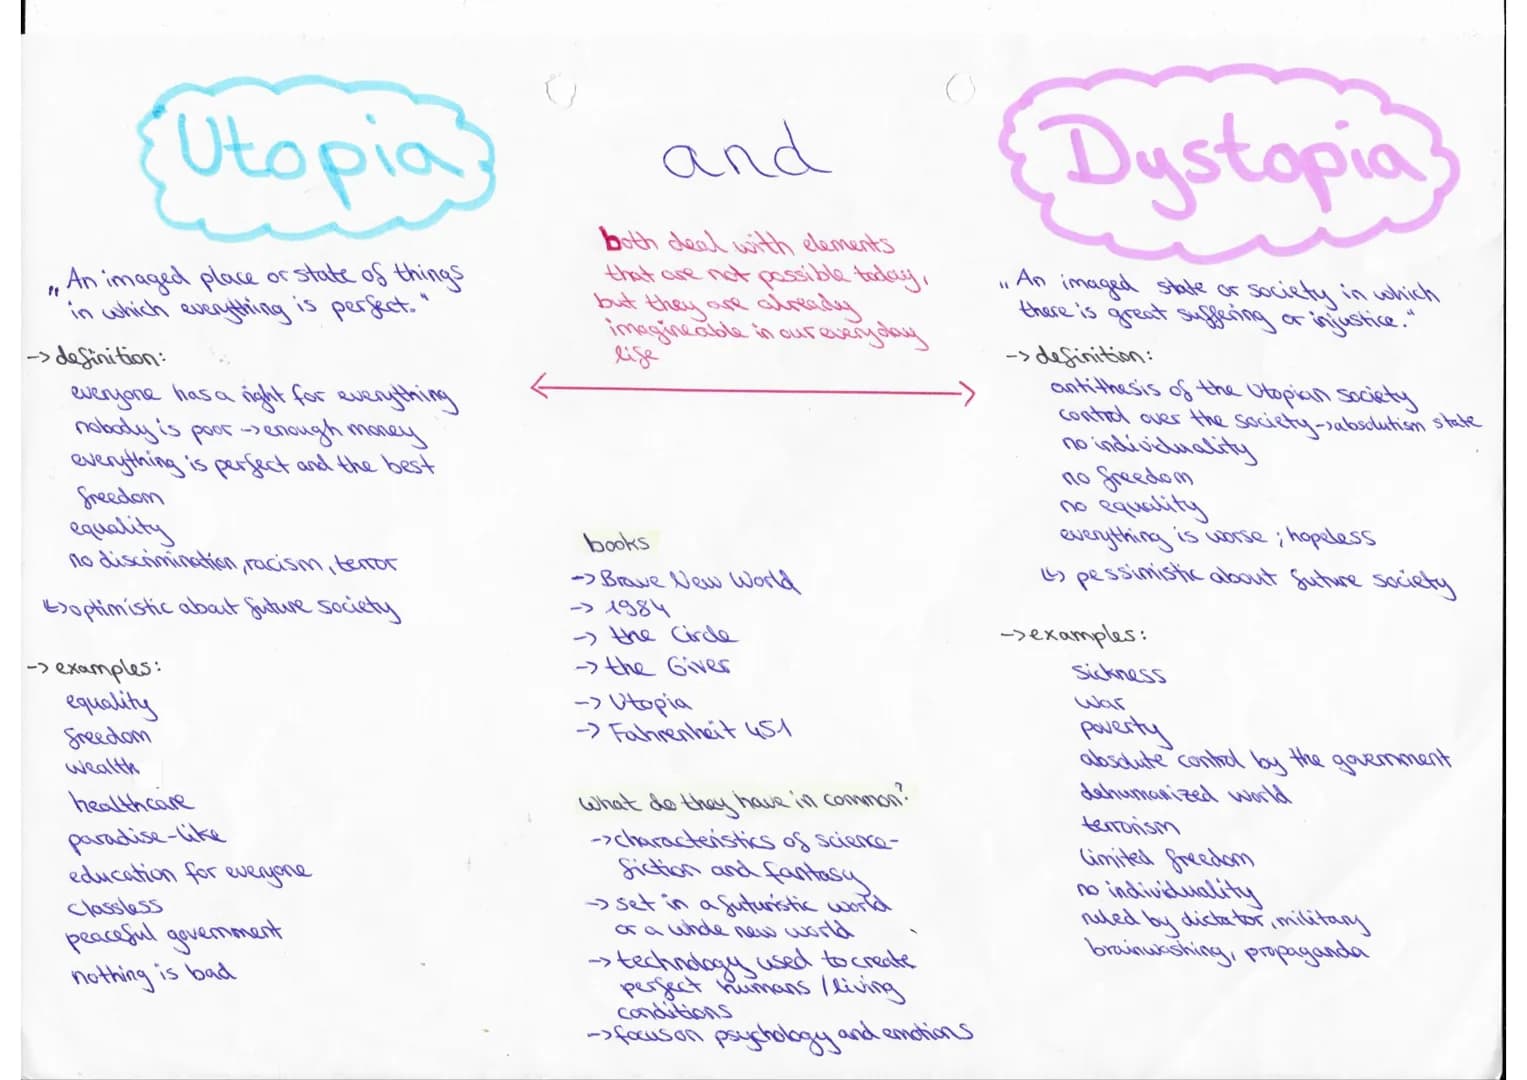 Utopia
and
Dystopia
both deal with elements
that are not possible today,
but they are already
imagineable in our everyday
life
„An imaged place or state of things
in which everything is perfect."
-> definition:
everyone has a right for everything
nobody is poor -> enough money
everything is perfect and the best
freedom
equality
no discrimination, racism, terror
↳ optimistic about future society
-> examples:
equality
freedom
wealth
healthcare
paradise-like
education for everyone
classless
peaceful government
nothing is bad
books
-> Brave New World
-> 1984
-> the Circle
-> the Giver
-> Utopia
-> Fahrenheit 451
what do they have in common?
-> characteristics of science-
fiction and fantasy
-> set in a futuristic world
or a whole new world
-> technology used to create
perfect humans / living
conditions
-> focus on psychology and emotions
„An imaged state or society in which
there is great suffering or injustice."
-> definition:
antithesis of the Utopian society
control over the society -> absolutism state
no individuality
no freedom
no equality
everything is worse ; hopeless
↳ pessimistic about future society
-> examples:
sickness
war
poverty
absolute control by the government
dehumanized world
terrorism
limited freedom
no individuality
ruled by dictator, military
brainwashing, propaganda